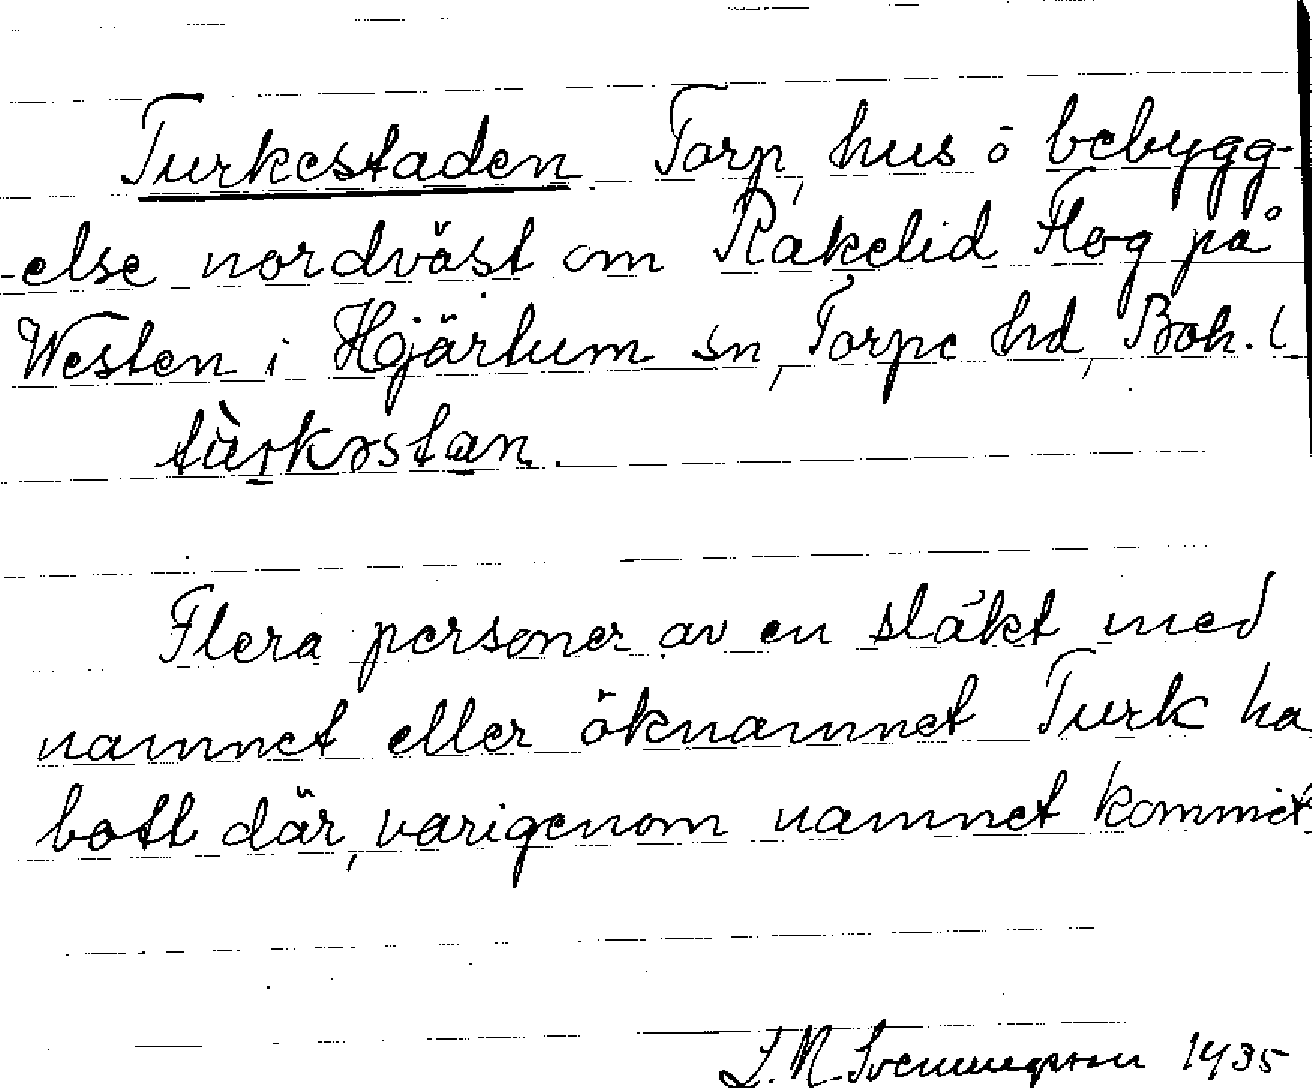 Turkestaden Torp, hus o bebygg-
-else nordväst om Rakelid Flog på
Westen i Hjärtum sn, Torpe hd, Boh. l
tùrkəstan.
Flera personer av en släkt med
namnet eller öknamnet Turk ha
bott där, varigenom namnet kommit.
J. N. Svenningsson 1935